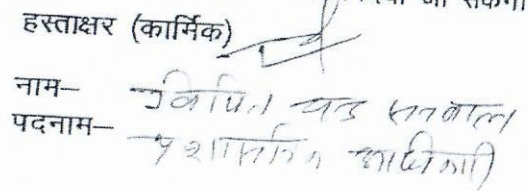 जा सकेगा
हस्ताक्षर (कार्मिक)
नाम– विपिन चन्द्र सतवाल
पदनाम– प्रशासनिक अधिकारी